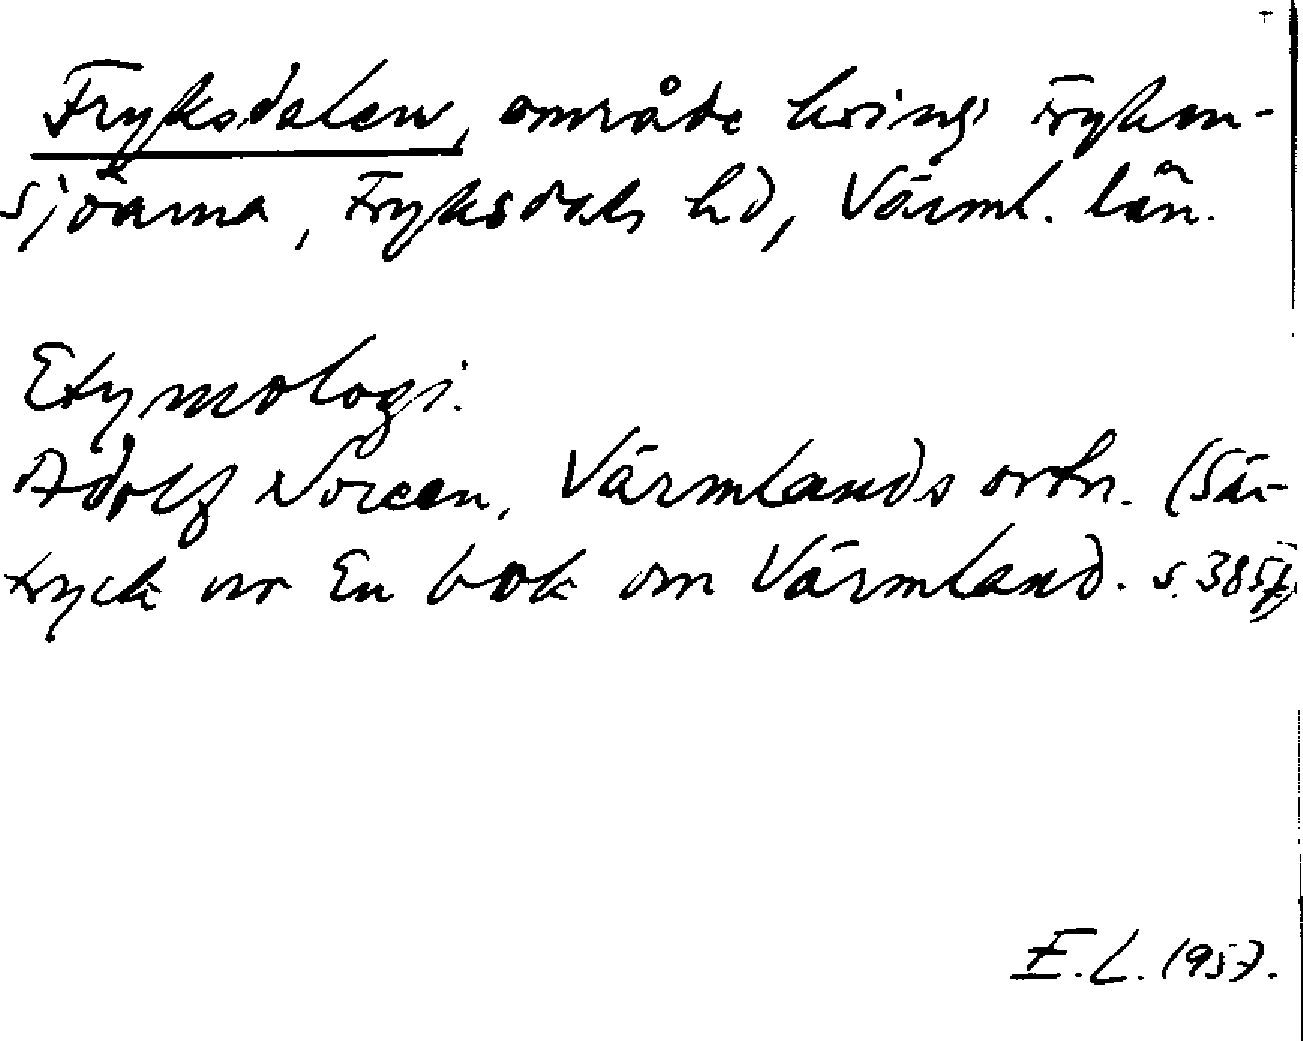 Fryksdalen, område kring Fryken-
sjöarna, Fryksdals hd, Värml. län.
Etymologi.
Adolf Noreen, Värmlands ortn. (Sär-
tryck ur En bok om Värmland. s. 385f)
E.L. 1957.